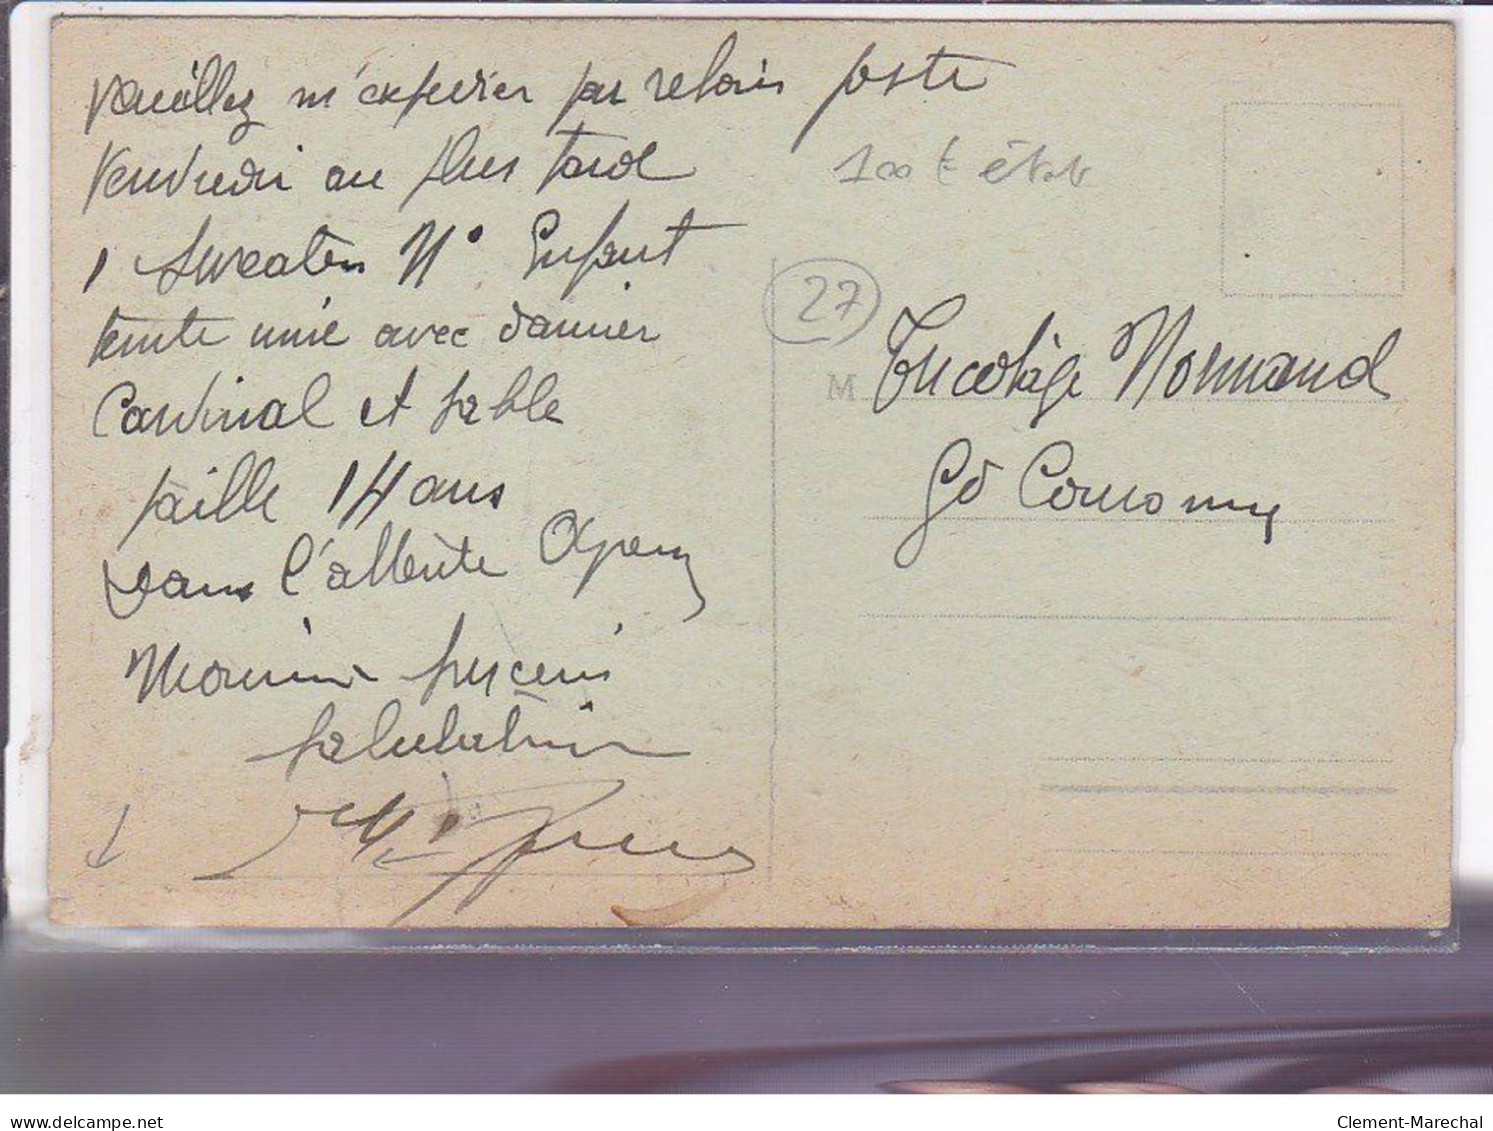 Veuillez m'expédier par retour poste
Vendredi au plus tard
1 Sweater N° Enfant
teinte unie avec damier
Cardinal et sable
taille 14 ans
Dans l'attente Agréez
Monsieur sincères
salutations
100 F
27
Tricotage Normand
M
delcampe.net
Clement-Marechal